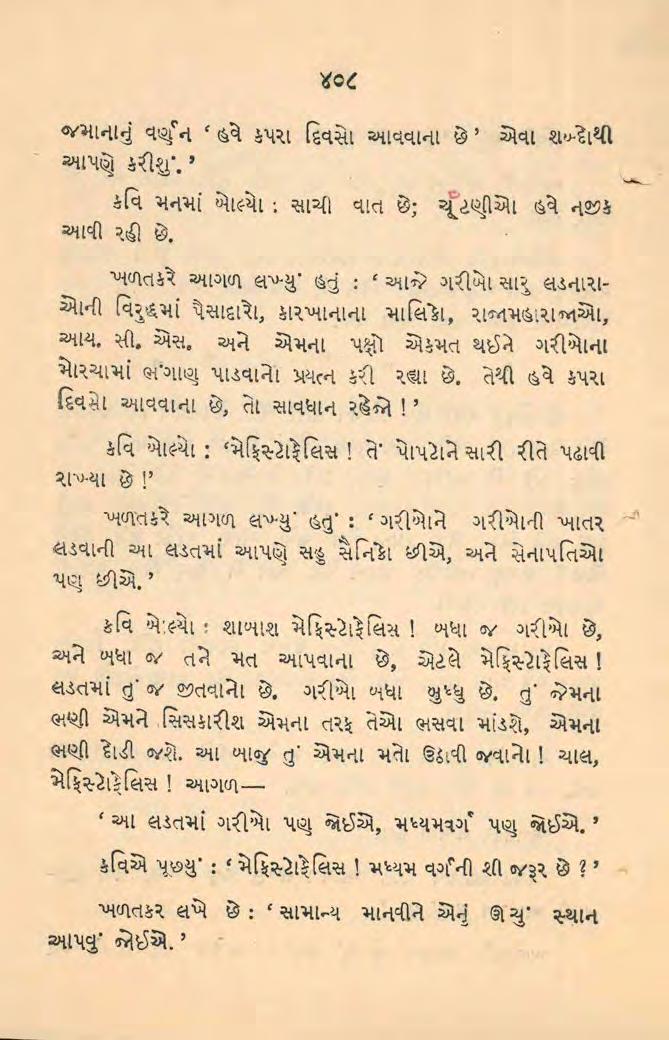 ૪૦૮
જમાનાનું વર્ણન ‘ હવે કપરા દિવસો આવવાના છે ’ એવા શબ્દોથી
આપણે કરીશું. ’
કવિ મનમાં બોલ્યો : સાચી વાત છે; ચૂંટણીઓ હવે નજીક
આવી રહી છે.
ખળતકરે આગળ લખ્યું હતું : ‘ આજે ગરીબો સારુ લડનારા-
ઓની વિરુદ્ધમાં પૈસાદારો, કારખાનાના માલિકો, રાજામહારાજાઓ,
આય. સી. એસ. અને એમના પક્ષો એકમત થઈને ગરીબોના
મોરચામાં ભંગાણ પાડવાનો પ્રયત્ન કરી રહ્યા છે. તેથી હવે કપરા
દિવસો આવવાના છે, તો સાવધાન રહેજો ! ’
કવિ બોલ્યો : ‘મેફિસ્ટોફેલિસ ! તેં પોપટોને સારી રીતે પઢાવી
રાખ્યા છે !’
ખળતકરે આગળ લખ્યું હતું : ‘ ગરીબોને ગરીબોની ખાતર
લડવાની આ લડતમાં આપણે સહુ સૈનિકો છીએ, અને સેનાપતિઓ
પણ છીએ. ’
કવિ બોલ્યો : શાબાશ મેફિસ્ટોફેલિસ ! બધા જ ગરીબો છે,
અને બધા જ તને મત આપવાના છે, એટલે મેફિસ્ટોફેલિસ !
લડતમાં તું જ જીતવાનો છે. ગરીબો બધા બુધ્ધુ છે. તું જેમના
ભણી એમને સિસકારીશ એમના તરફ તેઓ ભસવા માંડશે, એમના
ભણી દોડી જશે. આ બાજુ તું એમના મતો ઉઠાવી જવાનો ! ચાલ,
મેફિસ્ટોફેલિસ ! આગળ—
‘ આ લડતમાં ગરીબો પણ જોઈએ, મધ્યમવર્ગ પણ જોઈએ. ’
કવિએ પૂછ્યું : ‘ મેફિસ્ટોફેલિસ ! મધ્યમ વર્ગની શી જરૂર છે ? ’
ખળતકર લખે છે : ‘ સામાન્ય માનવીને એનું ઊંચું સ્થાન
આપવું જોઈએ. ’